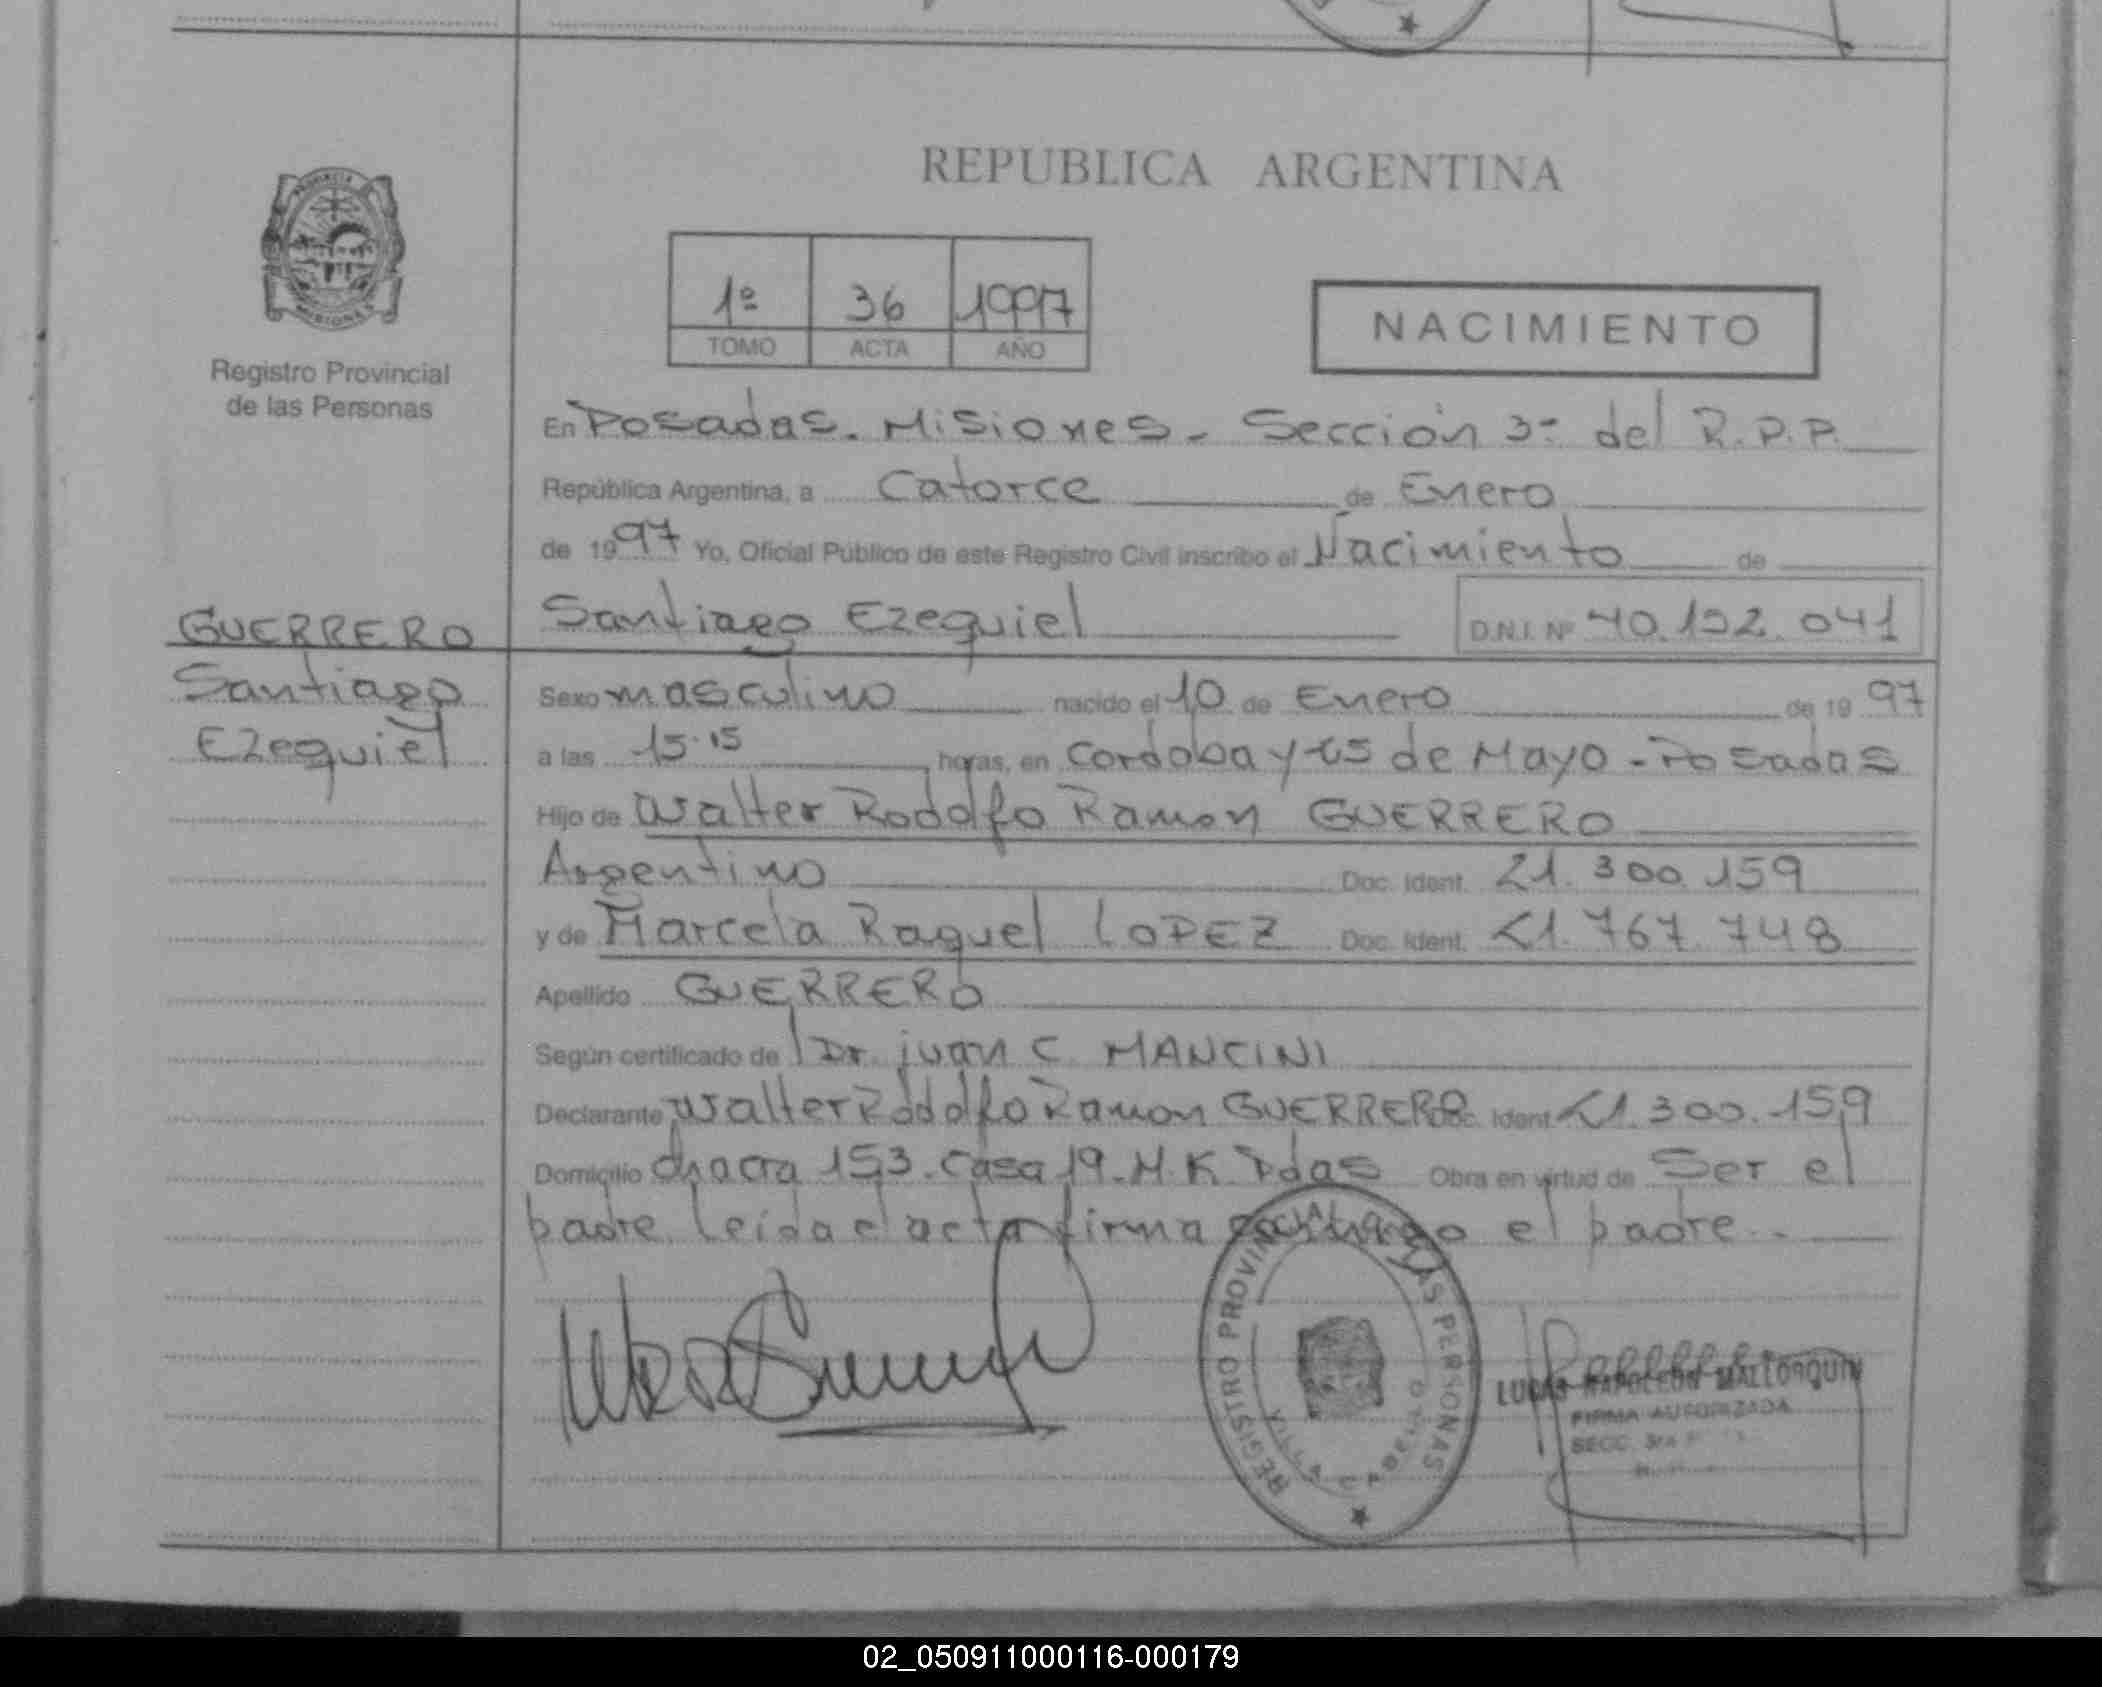 REPUBLICA ARGENTINA
PROVINCIA
MISIONES
Registro Provincial
de las Personas
1º 36 1997
TOMO ACTA AÑO
NACIMIENTO
En Posadas. Misiones - Sección 3º del R.P.P.
República Argentina, a Catorce de Enero
de 1997 Yo, Oficial Público de este Registro Civil inscribo el Nacimiento de
Santiago Ezequiel D.N.I. Nº 40.192.041
GUERRERO
Santiago
Ezequiel
Sexo masculino nacido el 10 de Enero de 1997
a las 15.15 horas, en Cordoba y 25 de Mayo - Posadas
Hijo de Walter Rodolfo Ramon GUERRERO
Argentino Doc. Ident. 21.300.159
y de Marcela Raquel LOPEZ Doc. Ident. 21.767.748
Apellido GUERRERO
Según certificado de Dr. juan C. MANCINI
Declarante Walter Rodolfo Ramon GUERRERO Doc. Ident. 21.300.159
Domicilio chacra 153. Casa 19. M.K. Pdas Obra en virtud de Ser el
padre. leida el acta firma conmigo el padre.-
REGISTRO PROVINCIAL DE LAS PERSONAS
VILLA CABELLO
LUCAS NAPOLEON MALLORQUIN
FIRMA AUTORIZADA
SECC. 3ra
02_050911000116-000179